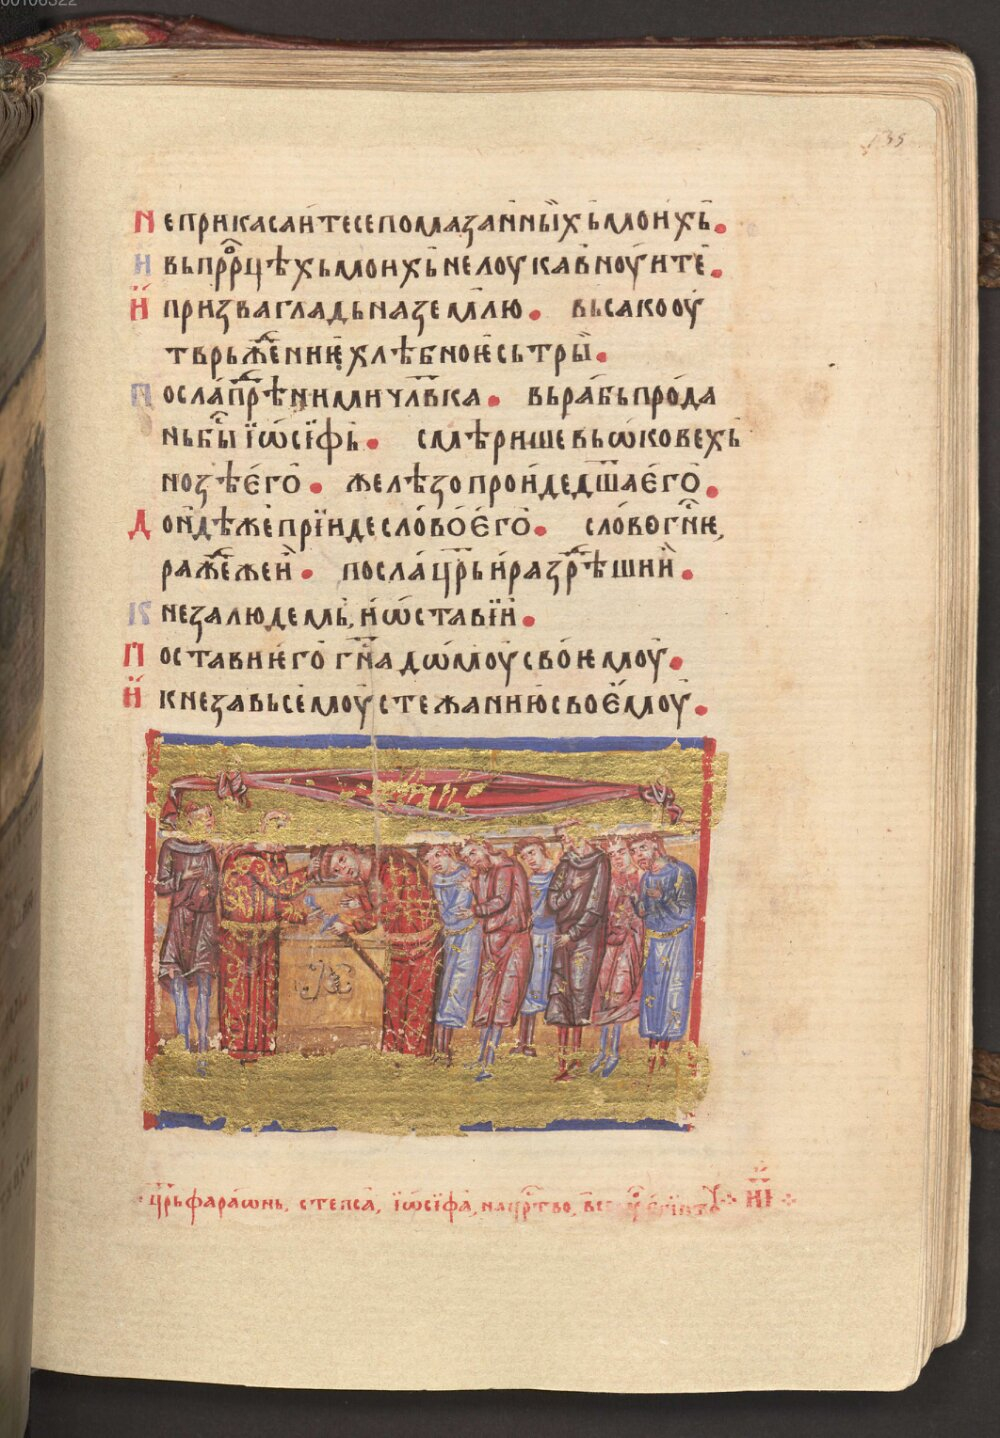 135
Не прикасаите се помазанныхь моихь.
И вь пррⷪцѣхь моихь не лоукавноуите.
И призва гладь на землю. вьсако оу
тврьжⷣение хлѣбное сьтры.
Посла прѣⷣ ними члвка. вь рабь прода
нь быⷭ їѡсїфь. смѣрише вь ѡковехь
нозѣ его. желѣзо проиде дша его.
Доидѣже прїиде слово его. слово гнⷭе,
ражⷣеже и. посла црь и разрⷣѣши и.
Кнеза людемь, и ѡстави и.
Постави его гна дѡмоу своемоу.
И кнеза вьсемоу стежанию своемоу.
црь фараѡнь, степса, їѡсїфа, на црⷭтво,